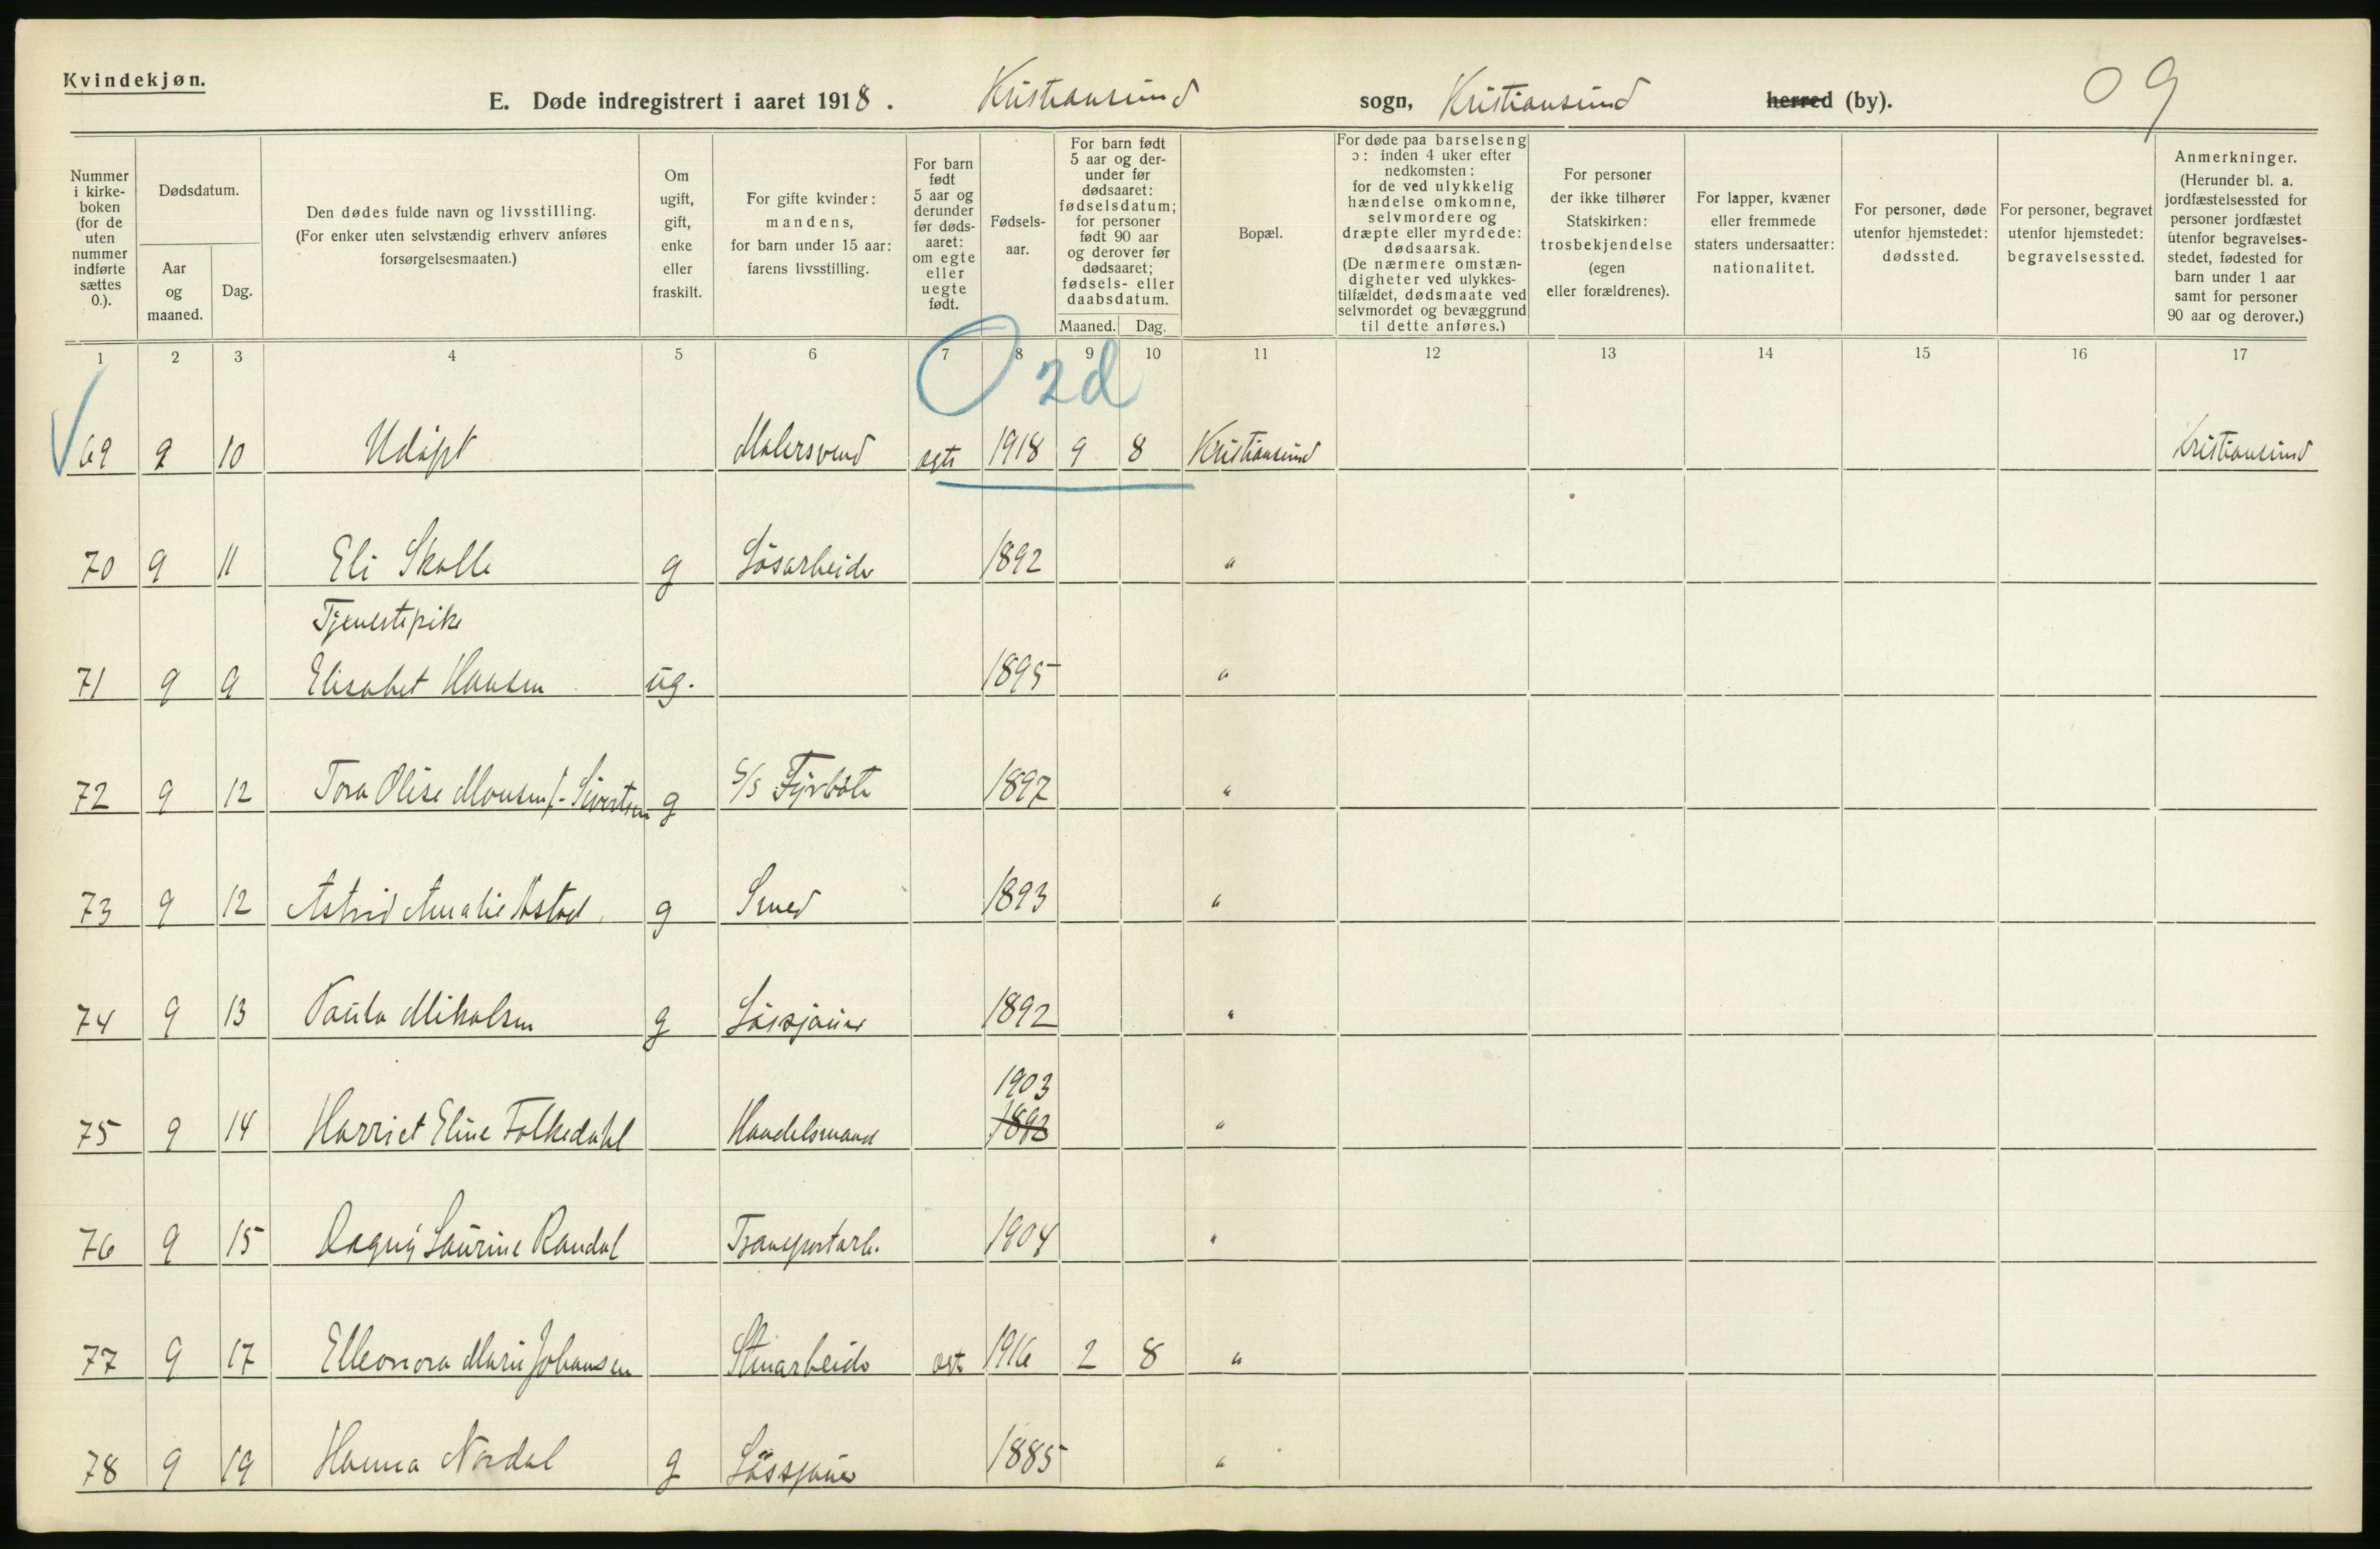 Kvindekjøn.
E. Døde indregistrert i aaret 1918. Kristiansund sogn, Kristiansund herred (by). 09
Nummer i kirkeboken (for de uten nummer indførte sættes 0.).
Dødsdatum.
Aar og maaned.
Dag.
Den dødes fulde navn og livsstilling.
(For enker uten selvstændig erhverv anføres forsørgelsesmaaten.)
Om ugift, gift, enke eller fraskilt.
For gifte kvinder: mandens, for barn under 15 aar: farens livsstilling.
For barn født 5 aar og derunder før dødsaaret: om egte eller uegte født.
Fødselsaar.
For barn født 5 aar og derunder før dødsaaret: fødselsdatum; for personer født 90 aar og derover før dødsaaret; fødsels- eller daabsdatum.
Maaned. Dag.
Bopæl.
For døde paa barselseng ɔ: inden 4 uker efter nedkomsten: for de ved ulykkelig hændelse omkomne, selvmordere og dræpte eller myrdede: dødsaarsak. (De nærmere omstændigheter ved ulykkestilfældet, dødsmaate ved selvmordet og bevæggrund til dette anføres.)
For personer der ikke tilhører Statskirken: trosbekjendelse (egen eller forældrenes).
For lapper, kvæner eller fremmede staters undersaatter: nationalitet.
For personer, døde utenfor hjemstedet: dødssted.
For personer, begravet utenfor hjemstedet: begravelsessted.
Anmerkninger. (Herunder bl. a. jordfæstelsessted for personer jordfæstet utenfor begravelsesstedet, fødested for barn under 1 aar samt for personer 90 aar og derover.)
1 2 3 4 5 6 7 8 9 10 11 12 13 14 15 16 17
2d
69 9 10 Udøpt Malersvend egte 1918 9 8 Kristiansund Kristiansund
70 9 11 Eli Skalle g Løsarbeider 1892 "
Tjenestepike
71 9 9 Elisabet Hansen ug. 1895 "
72 9 12 Tora Olise Monsen f. Sivertsen g S/S Fyrbøter 1897 "
73 9 12 Astrid Amalie g Smed 1893 "
74 9 13 Paula Mikalsen g Løssjauer 1892 "
1903
75 9 14 Harriet Eline Folkedahl Handelsmand 1893 "
76 9 15 Dagny Laurine Randal Transportarb. 1904 "
77 9 17 Elleonora Marie Johansen Stenarbeider egte 1916 2 8 "
78 9 19 Hanna Nordal g Løssjauer 1885 "